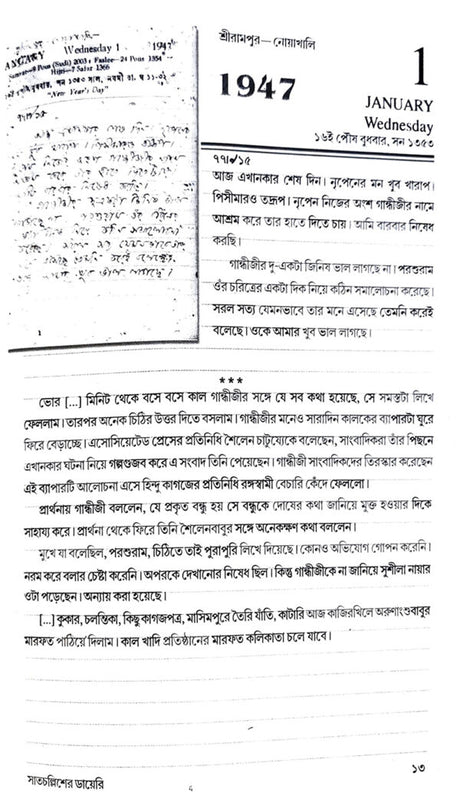 ANGARY Wednesday 1 1947
Samvat—9 Pous (Sudi) 2003 : Faslee—24 Pous 1354
Hijri—7 Safar 1366
"New Year's Day"
শ্রীরামপুর—নোয়াখালি
1947
1
JANUARY
Wednesday
১৬ই পৌষ বুধবার, সন ১৩৫৩
৭৭৷৶১৫
আজ এখানকার শেষ দিন। নৃপেনের মন খুব খারাপ।
পিসীমারও তদ্রূপ। নৃপেন নিজের অংশ গান্ধীজীর নামে
আশ্রম করে তার হাতে দিতে চায়। আমি বারবার নিষেধ
করছি।
গান্ধীজীর দু-একটা জিনিষ ভাল লাগছে না। পরশুরাম
ওঁর চরিত্রের একটা দিক নিয়ে কঠিন সমালোচনা করেছে।
সরল সত্য যেমনভাবে তার মনে এসেছে তেমনি করেই
বলেছে। ওকে আমার খুব ভাল লাগছে।
***
ভোর [...] মিনিট থেকে বসে বসে কাল গান্ধীজীর সঙ্গে যে সব কথা হয়েছে, সে সমস্তটা লিখে
ফেললাম। তারপর অনেক চিঠির উত্তর দিতে বসলাম। গান্ধীজীর মনেও সারাদিন কালকের ব্যাপারটা ঘুরে
ফিরে বেড়াচ্ছে। এসোসিয়েটেড প্রেসের প্রতিনিধি শৈলেন চাটুয্যেকে বলেছেন, সাংবাদিকরা তাঁর পিছনে
এখানকার ঘটনা নিয়ে গল্পগুজব করে এ সংবাদ তিনি পেয়েছেন। গান্ধীজী সাংবাদিকদের তিরস্কার করেছেন
এই ব্যাপারটি আলোচনা এসে হিন্দু কাগজের প্রতিনিধি রঙ্গস্বামী বেচারি কেঁদে ফেললো।
প্রার্থনায় গান্ধীজী বললেন, যে প্রকৃত বন্ধু হয় সে বন্ধুকে দোষের কথা জানিয়ে মুক্ত হওয়ার দিকে
সাহায্য করে। প্রার্থনা থেকে ফিরে তিনি শৈলেনবাবুর সঙ্গে অনেকক্ষণ কথা বললেন।
মুখে যা বলেছিল, পরশুরাম, চিঠিতে তাই পুরাপুরি লিখে দিয়েছে। কোনও অভিযোগ গোপন করেনি।
নরম করে বলার চেষ্টা করেনি। অপরকে দেখানোর নিষেধ ছিল। কিন্তু গান্ধীজীকে না জানিয়ে সুশীলা নায়ার
ওটা পড়েছেন। অন্যায় করা হয়েছে।
[...] কুকার, চলন্তিকা, কিছু কাগজপত্র, মাসিমপুরে তৈরি যাঁতি, কাটারি আজ কাজিরখিলে অরুণাংশুবাবুর
মারফত পাঠিয়ে দিলাম। কাল খাদি প্রতিষ্ঠানের মারফত কলিকাতা চলে যাবে।
সাতচল্লিশের ডায়েরি
১৩